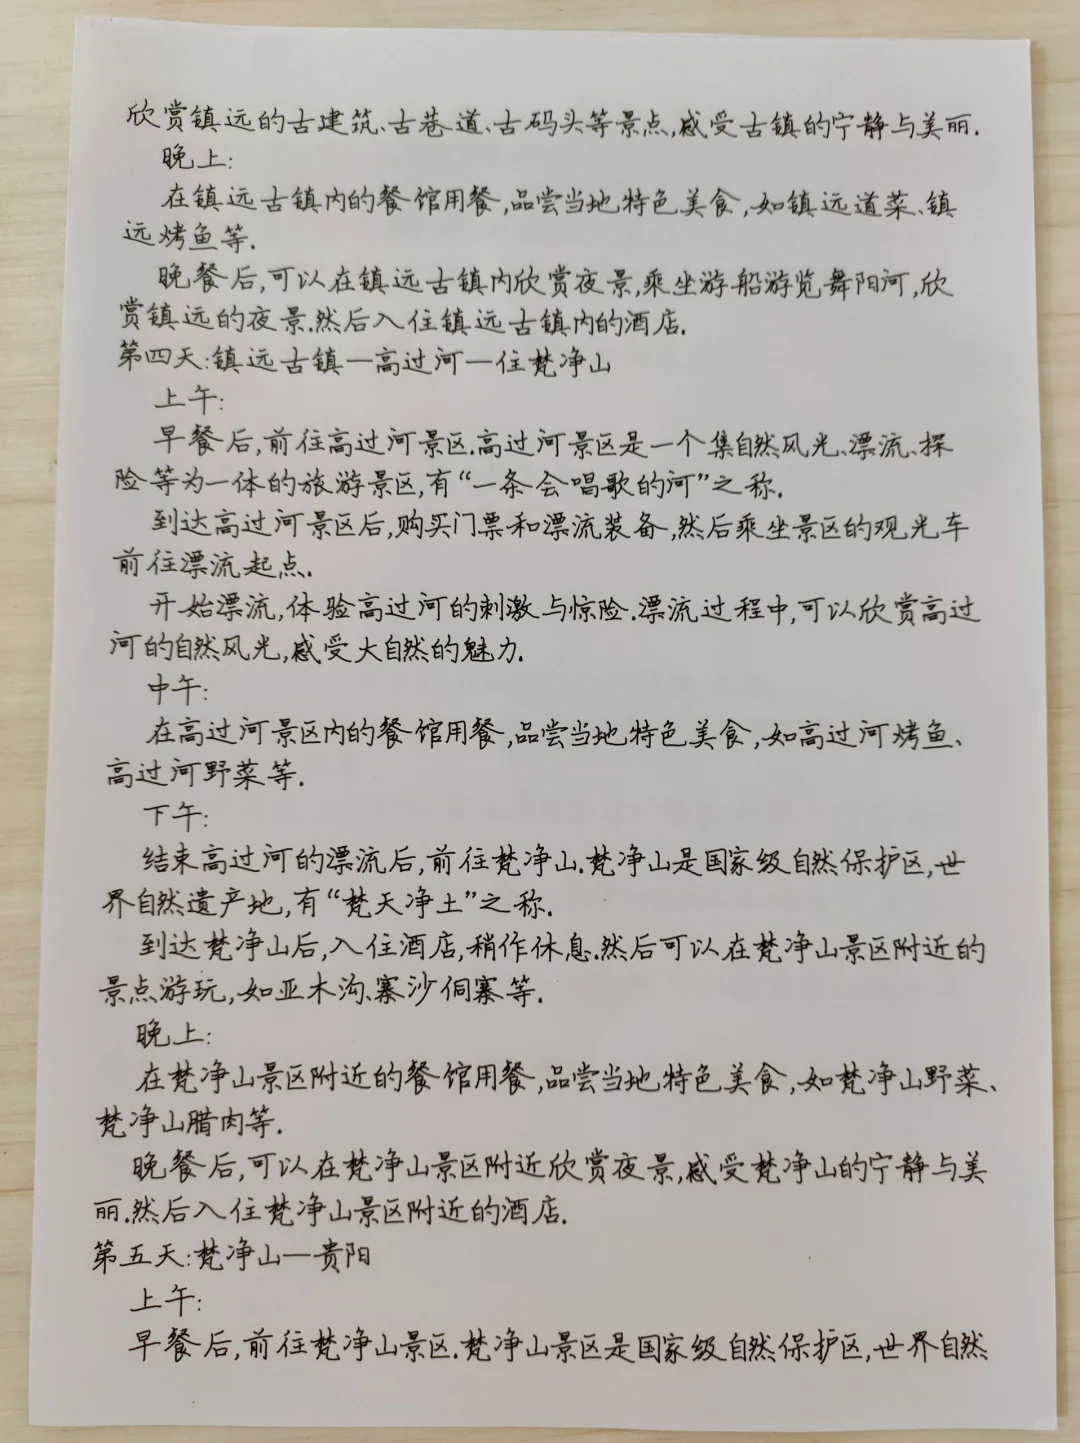 欣赏镇远的古建筑、古巷道、古码头等景点,感受古镇的宁静与美丽.
晚上:
在镇远古镇内的餐馆用餐,品尝当地特色美食,如镇远道菜、镇
远烤鱼等.
晚餐后,可以在镇远古镇内欣赏夜景,乘坐游船游览舞阳河,欣
赏镇远的夜景.然后入住镇远古镇内的酒店.
第四天:镇远古镇—高过河—住梵净山
上午:
早餐后,前往高过河景区.高过河景区是一个集自然风光、漂流、探
险等为一体的旅游景区,有“一条会唱歌的河”之称.
到达高过河景区后,购买门票和漂流装备,然后乘坐景区的观光车
前往漂流起点.
开始漂流,体验高过河的刺激与惊险.漂流过程中,可以欣赏高过
河的自然风光,感受大自然的魅力.
中午:
在高过河景区内的餐馆用餐,品尝当地特色美食,如高过河烤鱼、
高过河野菜等.
下午:
结束高过河的漂流后,前往梵净山.梵净山是国家级自然保护区,世
界自然遗产地,有“梵天净土”之称.
到达梵净山后,入住酒店,稍作休息.然后可以在梵净山景区附近的
景点游玩,如亚木沟、寨沙侗寨等.
晚上:
在梵净山景区附近的餐馆用餐,品尝当地特色美食,如梵净山野菜、
梵净山腊肉等.
晚餐后,可以在梵净山景区附近欣赏夜景,感受梵净山的宁静与美
丽.然后入住梵净山景区附近的酒店.
第五天:梵净山—贵阳
上午:
早餐后,前往梵净山景区.梵净山景区是国家级自然保护区,世界自然